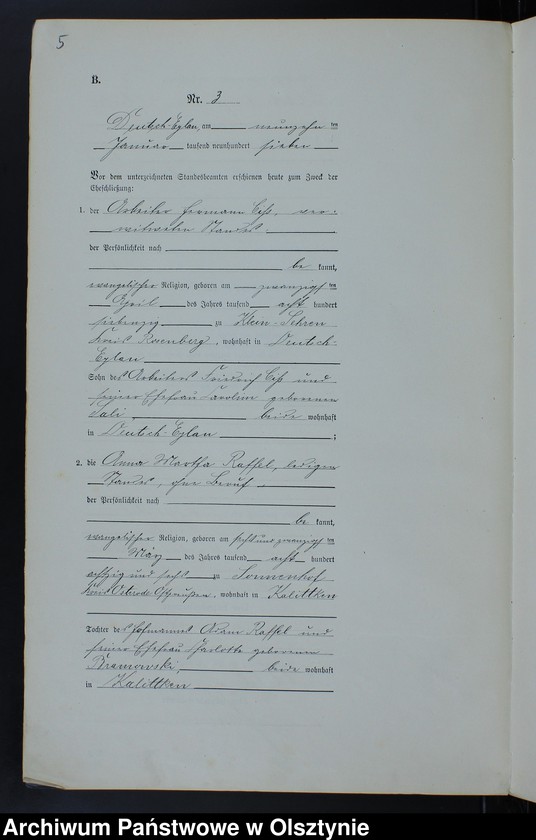 5
B.
Nr. 3
Deutsch-Eylau, am neunzehn ten
Januar tausend neunhundert sieben
Vor dem unterzeichneten Standesbeamten erschienen heute zum Zweck der
Eheschließung:
1. der Arbeiter Hermann ver-
witweten Standes
der Persönlichkeit nach
be kannt,
evangelischer Religion, geboren am zwanzigsten
April des Jahres tausend acht hundert
siebenzig zu Klein-Sehren
Kreis Rosenberg, wohnhaft in Deutsch-
Eylau
Sohn des Arbeiters Friedrich und
seiner Ehefrau Caroline geborenen
beide wohnhaft
in Deutsch-Eylau ;
2. die Anna Martha Raffel, ledigen
Standes, ohne Beruf
der Persönlichkeit nach
be kannt,
evangelischer Religion, geboren am sechsundzwanzigsten
März des Jahres tausend acht hundert
achtzig und sechs zu Sonnenhof
Kreis Osterode Ostpreußen, wohnhaft in Kalittken
Tochter des Hofmanns Adam Raffel und
seiner Ehefrau Charlotte geborenen
beide wohnhaft
in Kalittken
Archiwum Państwowe w Olsztynie